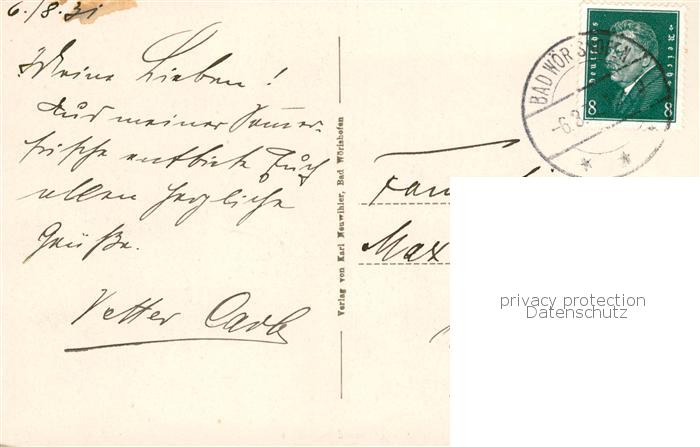 6./8.31
Meine Lieben!
Aus meiner Sommer-
frische entbiete Euch
allen herzliche
Grüße.
Vetter Carl
Verlag von Karl Neuwihler, Bad Wörishofen
Deutsches Reich
8 8
BAD WÖRISHOFEN
-6.8.
Fam
Max
privacy protection
Datenschutz